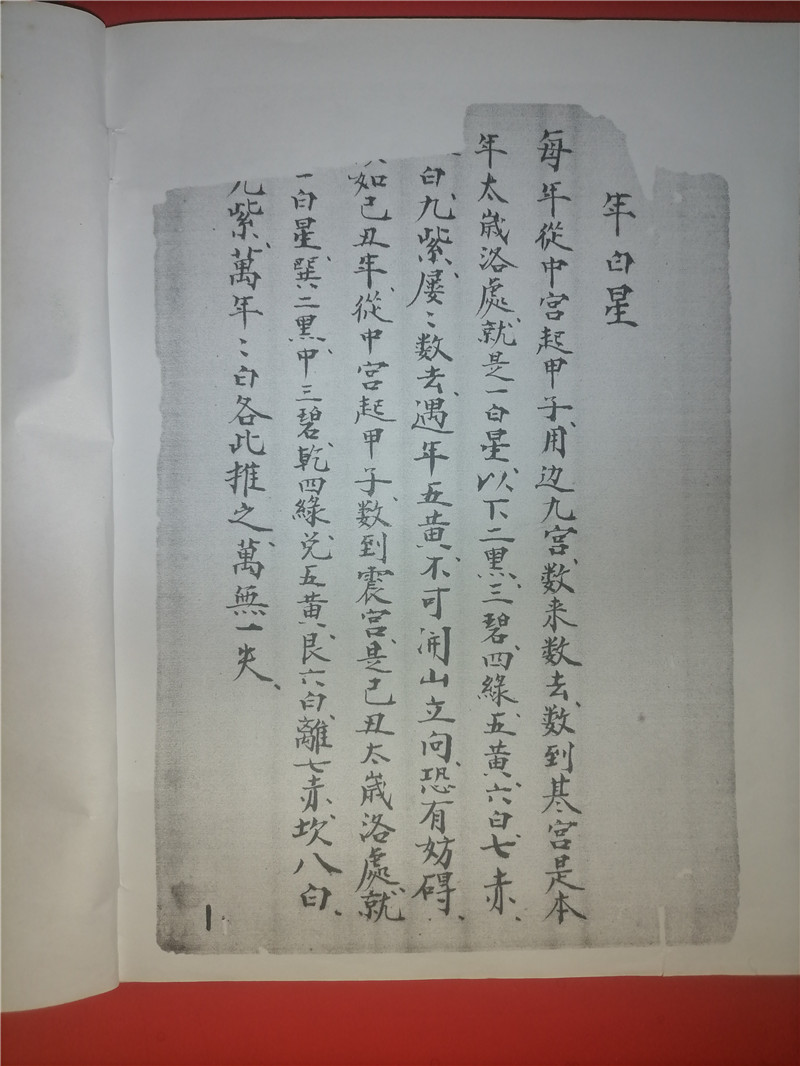 年白星
每年從中宫起甲子、用边九宫、数来数去、数到基宫是本
年太歲洛處、就是一白星、以下二黑、三碧、四綠、五黃、六白、七赤、
白、九紫、屡〻数去、遇年五黃、不可開山立向、恐有妨碍、
如己丑年、從中宫起甲子、数到震宫、是己丑太歲洛處、就
一白星、巽二黑、中三碧、乾四綠、兑五黃、艮六白、離七赤、坎八白、
九紫、萬年〻白各此推之、萬無一失、
1